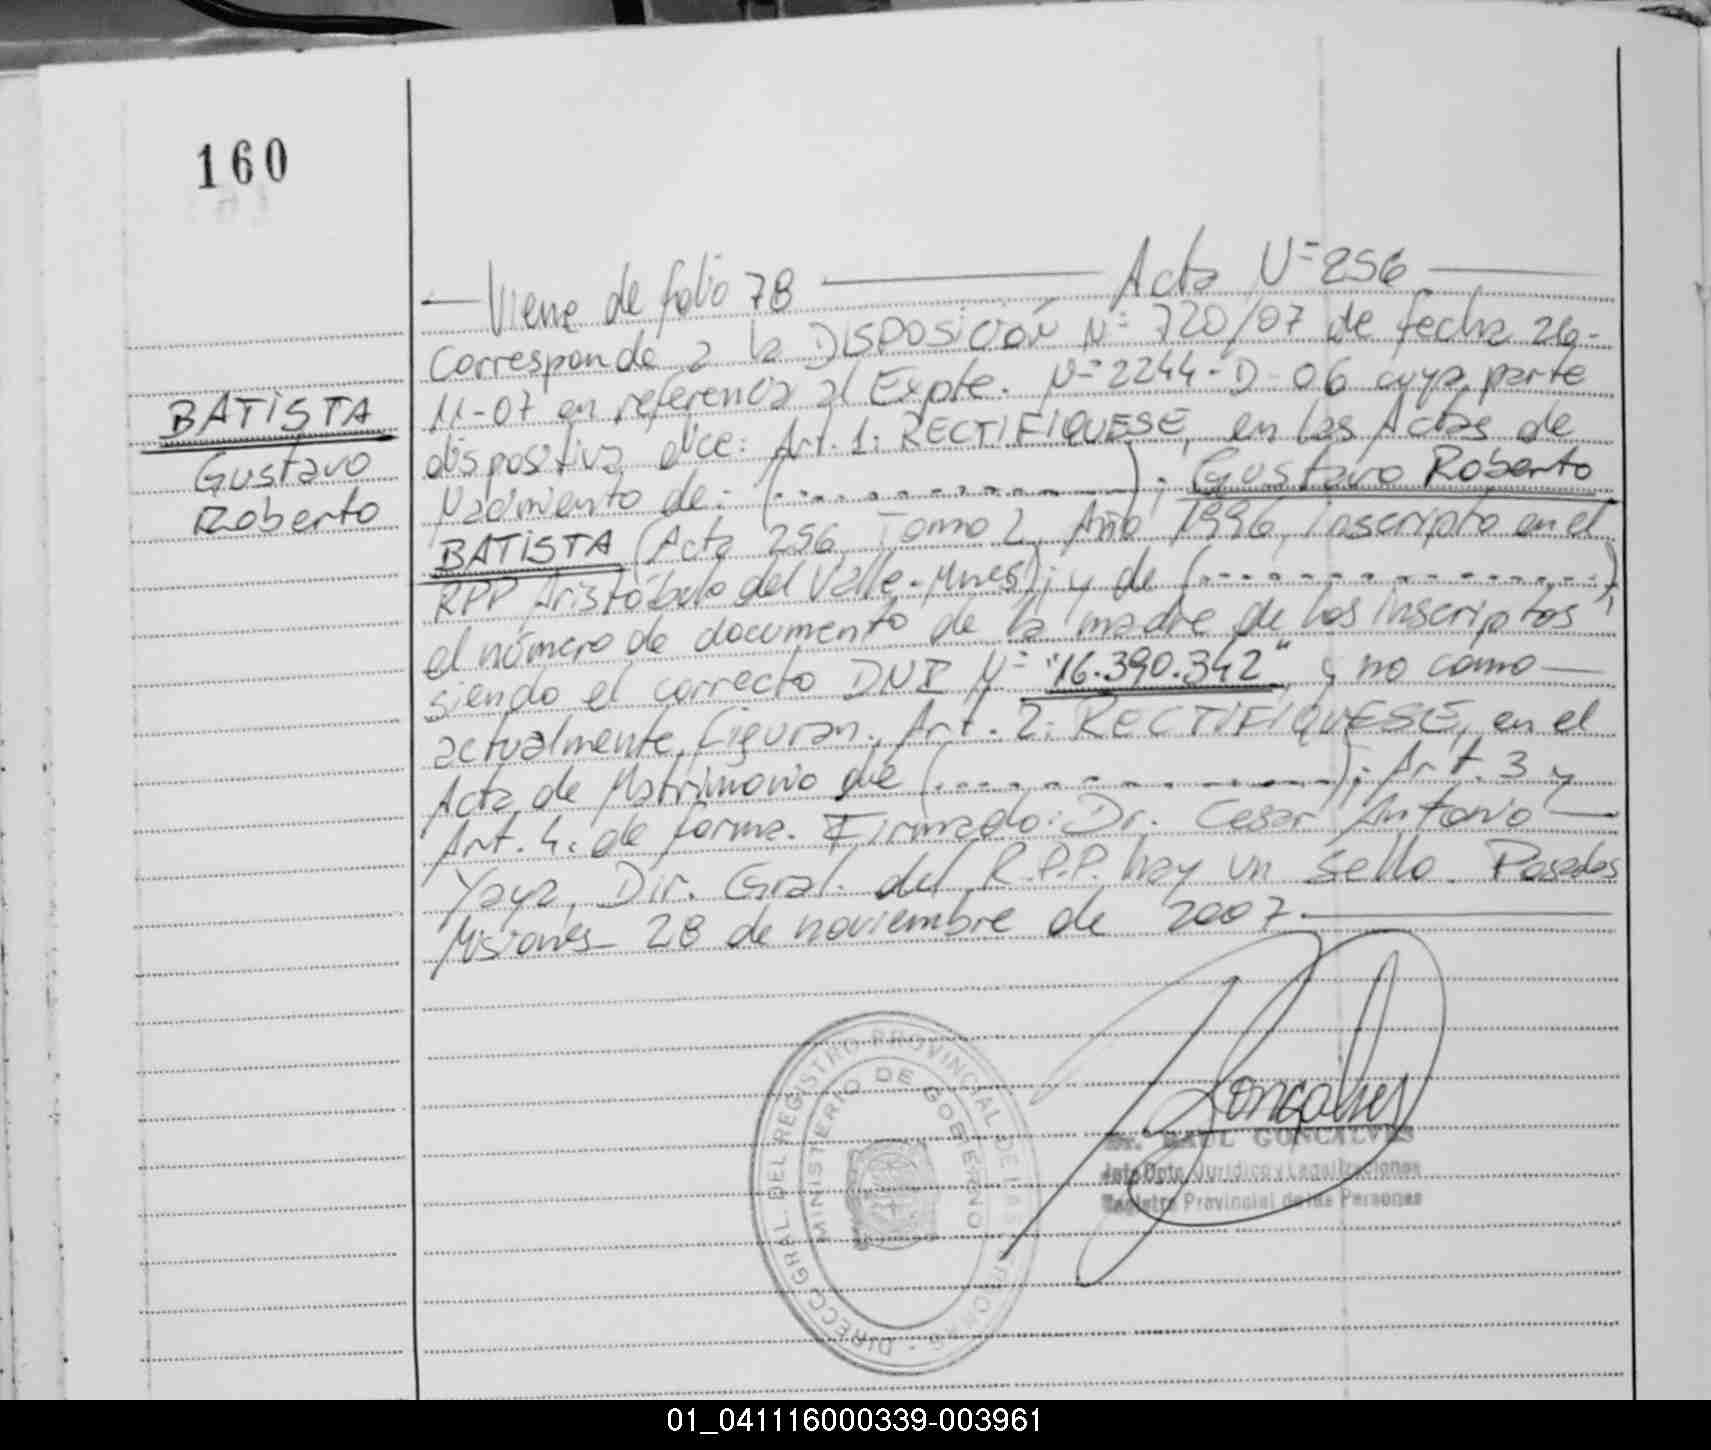 160
— Viene de folio 78 ——— Acta N= 256 ———
Corresponde a la DISPOSICIÓN N= 720/07 de fecha 26-
11-07 en referencia al Expte. N= 2244-D-06 cuya parte
dispositiva dice: Art. 1: RECTIFIQUESE, en las Actas de
Nacimiento de: (...........); Gustavo Roberto
BATISTA (Acta 256, Tomo 2, Año 1996, inscripto en el
RPP Aristóbulo del Valle-Mnes); y de (..............),
el número de documento de la madre de los inscriptos
siendo el correcto DNI N= "16.390.342" y no como —
actualmente figuran. Art. 2: RECTIFIQUESE, en el
Acta de Matrimonio de (..............); Art. 3 y
Art. 4: de forma. Firmado: Dr. Cesar Antonio —
Yaya, Dir. Gral. del R.P.P. hay un sello. Posadas
Misiones 28 de noviembre de 2007. ———
BATISTA
Gustavo
Roberto
DIRECC. GRAL. DEL REGISTRO PROVINCIAL DE LAS PERSONAS
MINISTERIO DE GOBIERNO
Gonçalves
RAUL GONCALVES
Jefe Dpto. Jurídico y Legalizaciones
Registro Provincial de las Personas
01_041116000339-003961